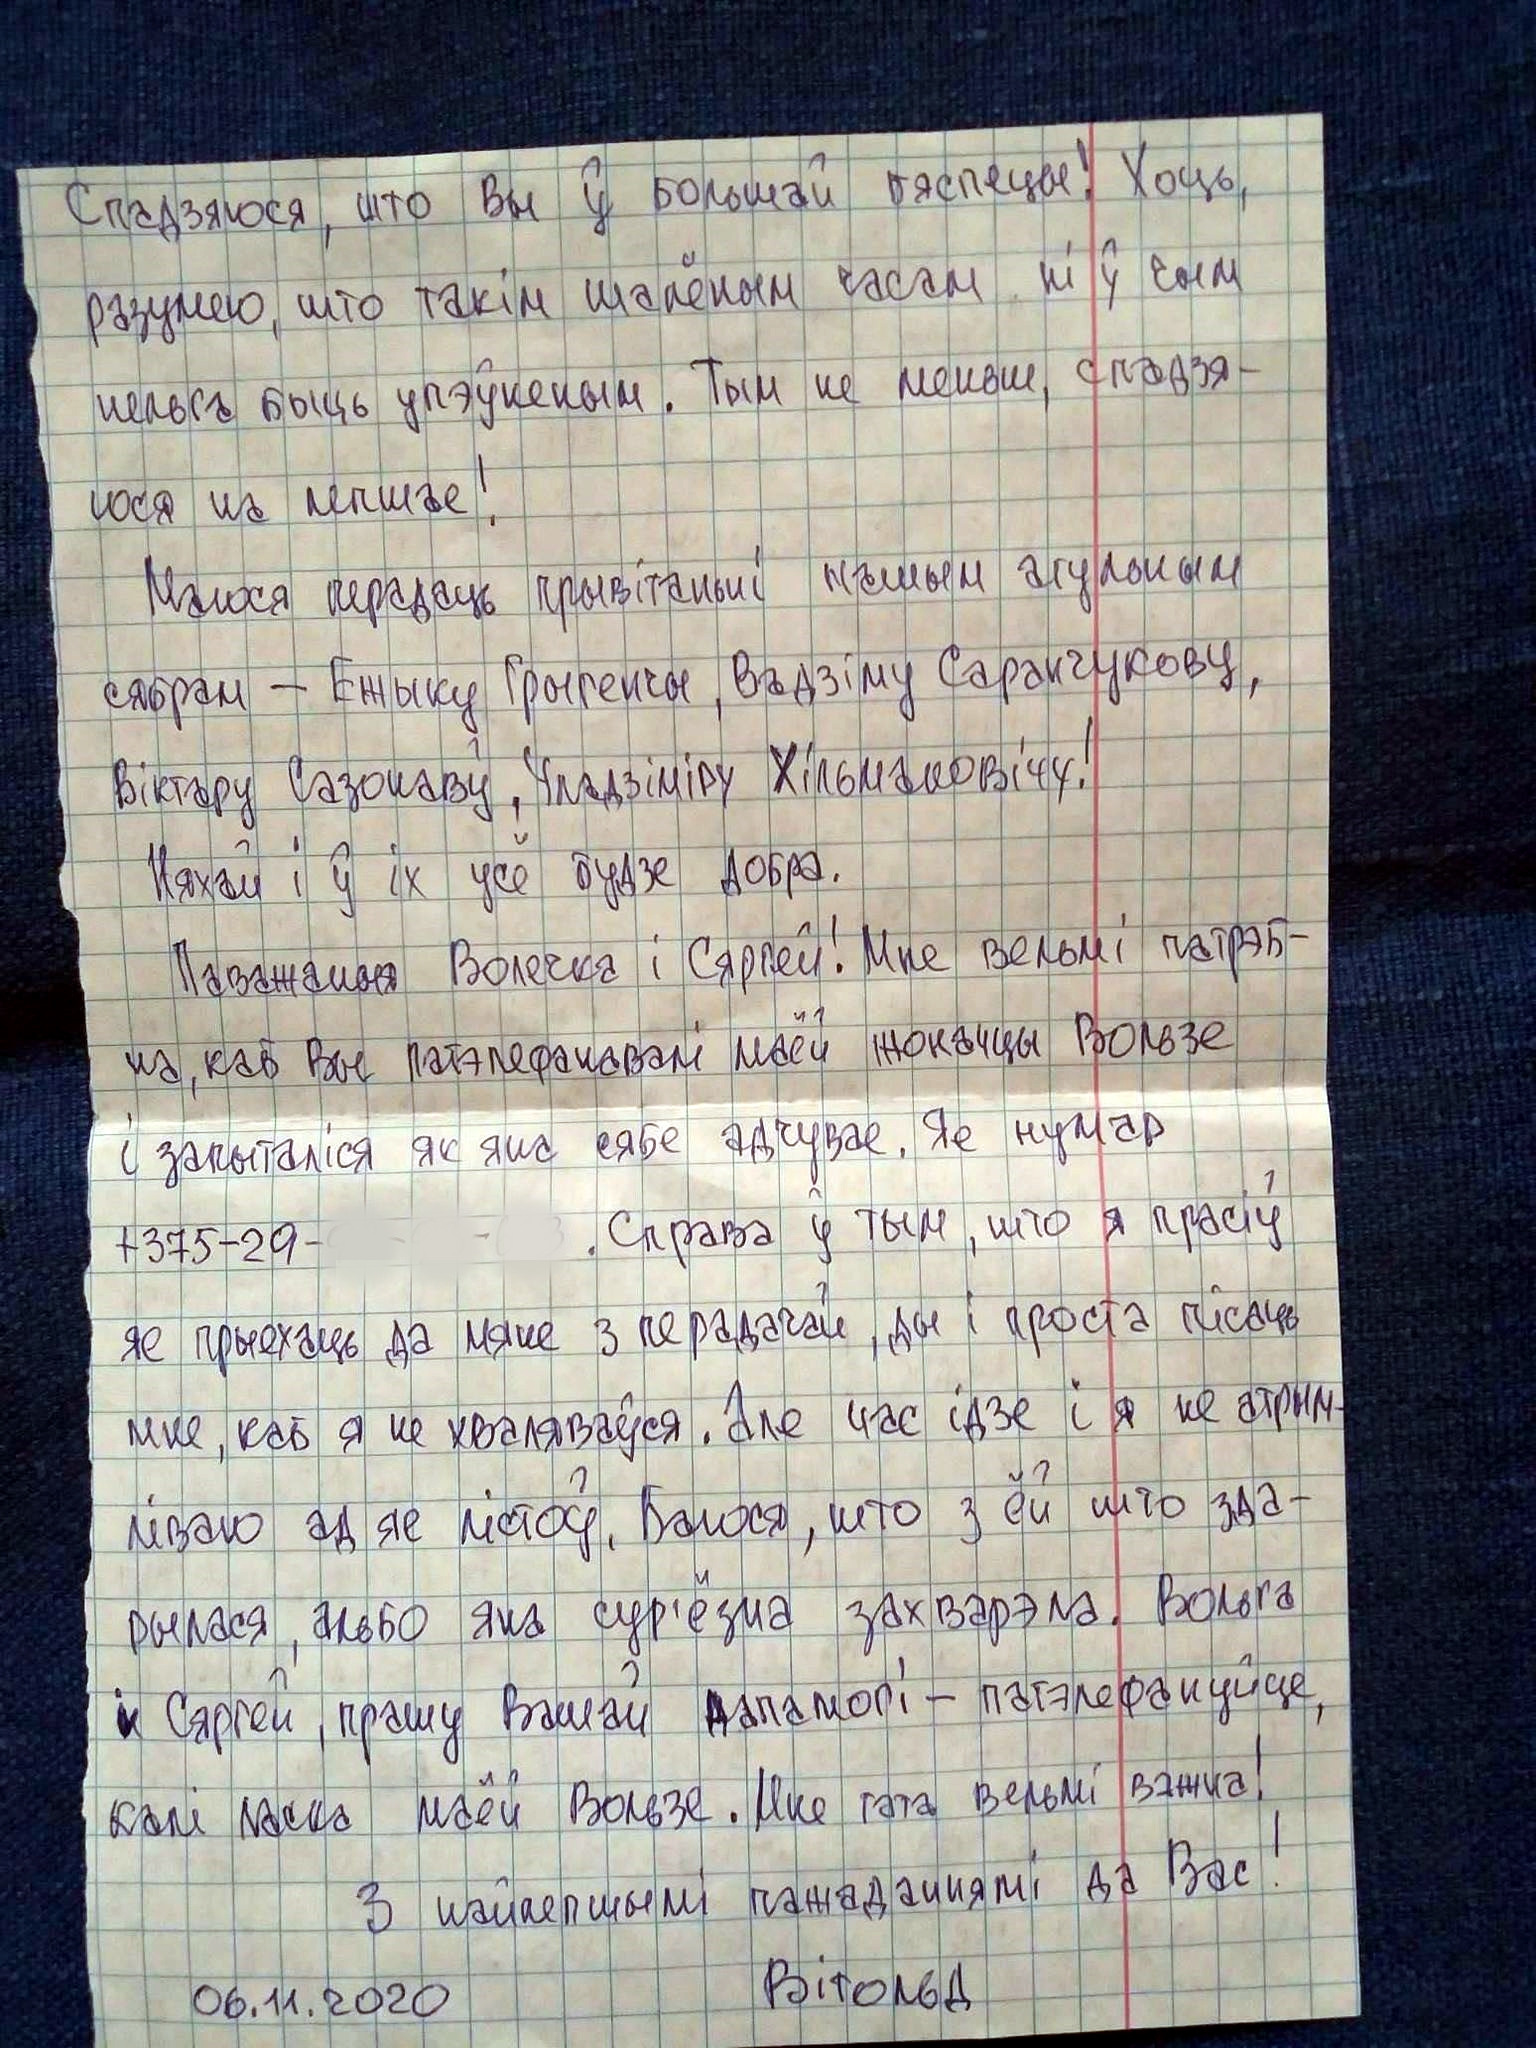 Спадзяюся, што Вы ў большай бяспецы! Хоць,
разумею, што такім шалёным часам ні ў чым
нельга быць упэўненым. Тым не меньш, спадзя-
юся на лепшае!
Маюся перадаць прывітаньні нашым агульным
сябрам – Ежыку Грыгенчы, Вадзіму Саранчукову,
Віктару Сазонаву, Уладзіміру Хільмановічу!
Няхай і ў іх усё будзе добра.
Паважаныя Волечка і Сяргей! Мне вельмі патрэб-
на, каб Вы патэлефанавалі маёй жонаццы Вользе
і запыталіся як яна сябе адчувае. Яе нумар
+375-29- - . Справа ў тым, што я прасіў
яе прыехаць да мяне з перадачай, ды і проста пісаць
мне, каб я не хваляваўся. Але час ідзе і я не атрым-
ліваю ад яе лістоў. Баюся, што з ёй што зда-
рылася, альбо яна сур'ёзна захварэла. Вольга
і Сяргей, прашу Вашай дапамогі – патэлефануйце,
калі ласка маёй Вользе. Мне гэта вельмі важна!
З найлепшымі пажаданнямі да Вас!
06.11.2020 Вітольд